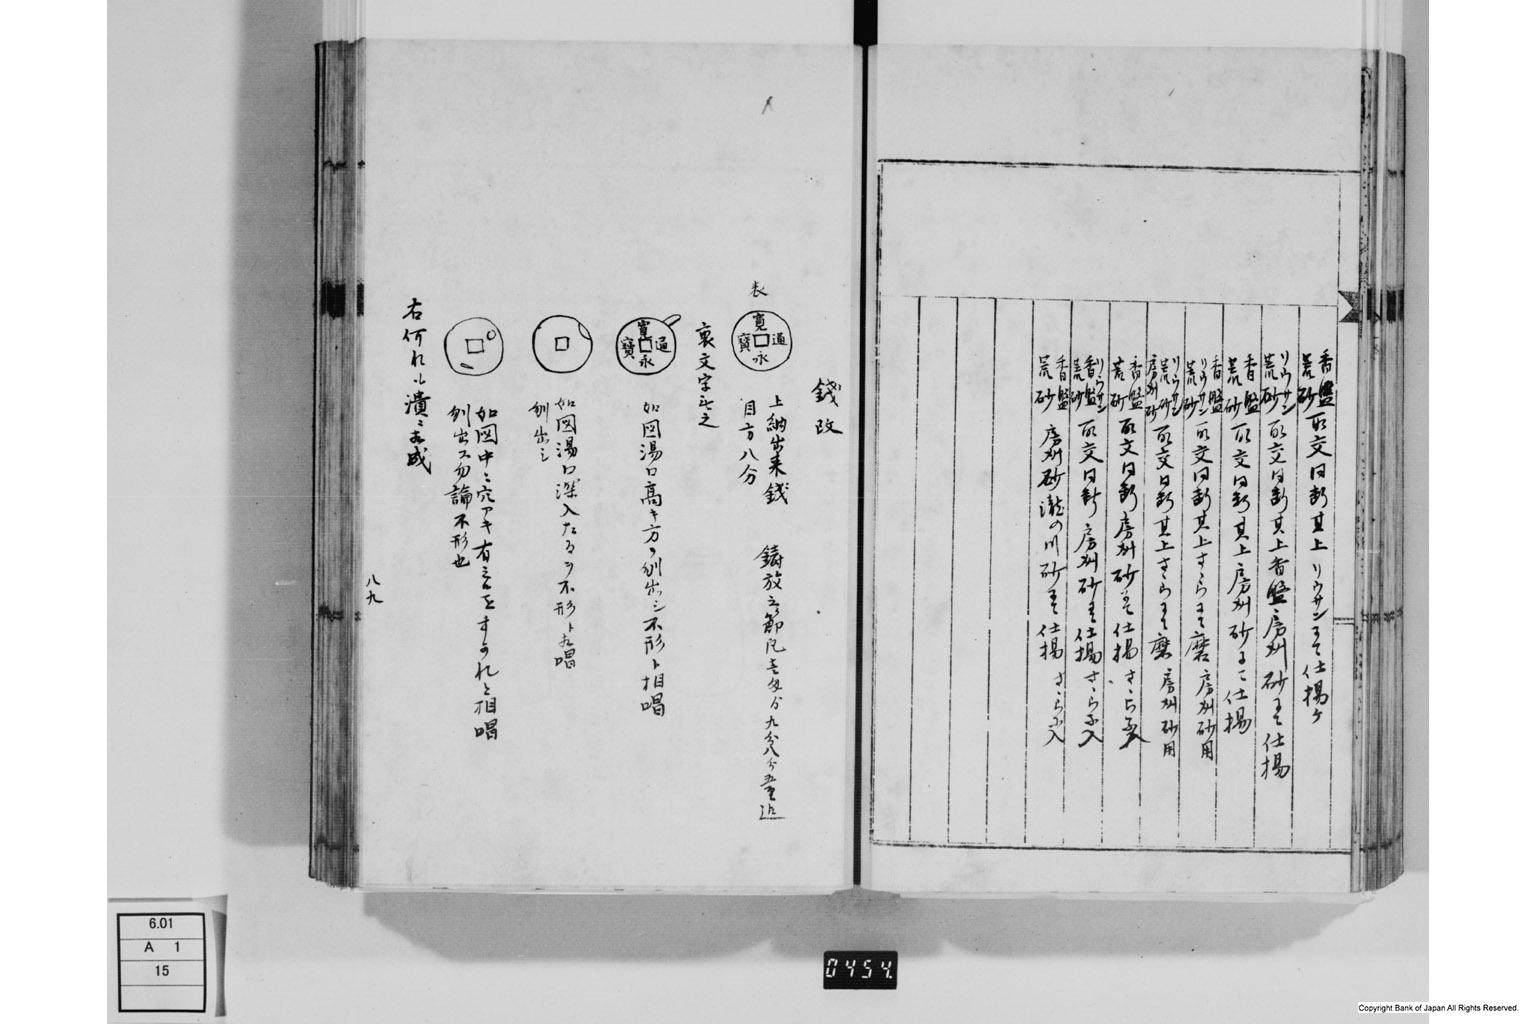 香盤
荒砂
取交同断其上リウサンニ而仕揚ケ
リウサン
荒砂
取交同断其上香盤房州砂ニ而仕揚
香盤
荒砂
取交同断其上房州砂ニ而仕揚
香盤
リウサン
荒砂
取交同断其上すゝらニ而磨房州砂用
リウサン
荒砂
房州砂
取交同断其上さゝらニ而磨房州砂用
香盤
荒砂
取交同断房州砂ニ而仕揚さゝら不入
リウサン
香盤
荒砂
取交同断房州砂ニ而仕揚さゝら不入
香盤
荒砂
房州砂瀧の川砂ニ而仕揚さゝら不入
銭改
表
寛永通寳
上納出来銭
目方八分
鋳放之節凡壱匁ゟ九分八分五厘迄
裏文字無之
寛永通寳
如図湯口高キ方ヲ刎出シ不形ト相唱
如図湯口深入たるヲ不形ト相唱
刎出シ
如図中ニ穴アキ有之をすのれと相唱
刎出ス勿論不形也
右何れも潰ニ相成
八九
6.01
A 1
15
0454.
Copyright Bank of Japan All Rights Reserved.